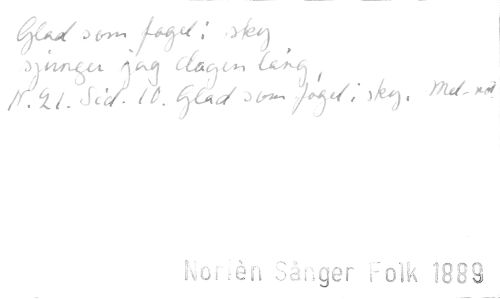 Glad som fogel i sky
sjunger jag dagen lång,
N. 21. Sid. 10. Glad som fogel i sky. Mel-not.
Norlèn Sånger Folk 1889